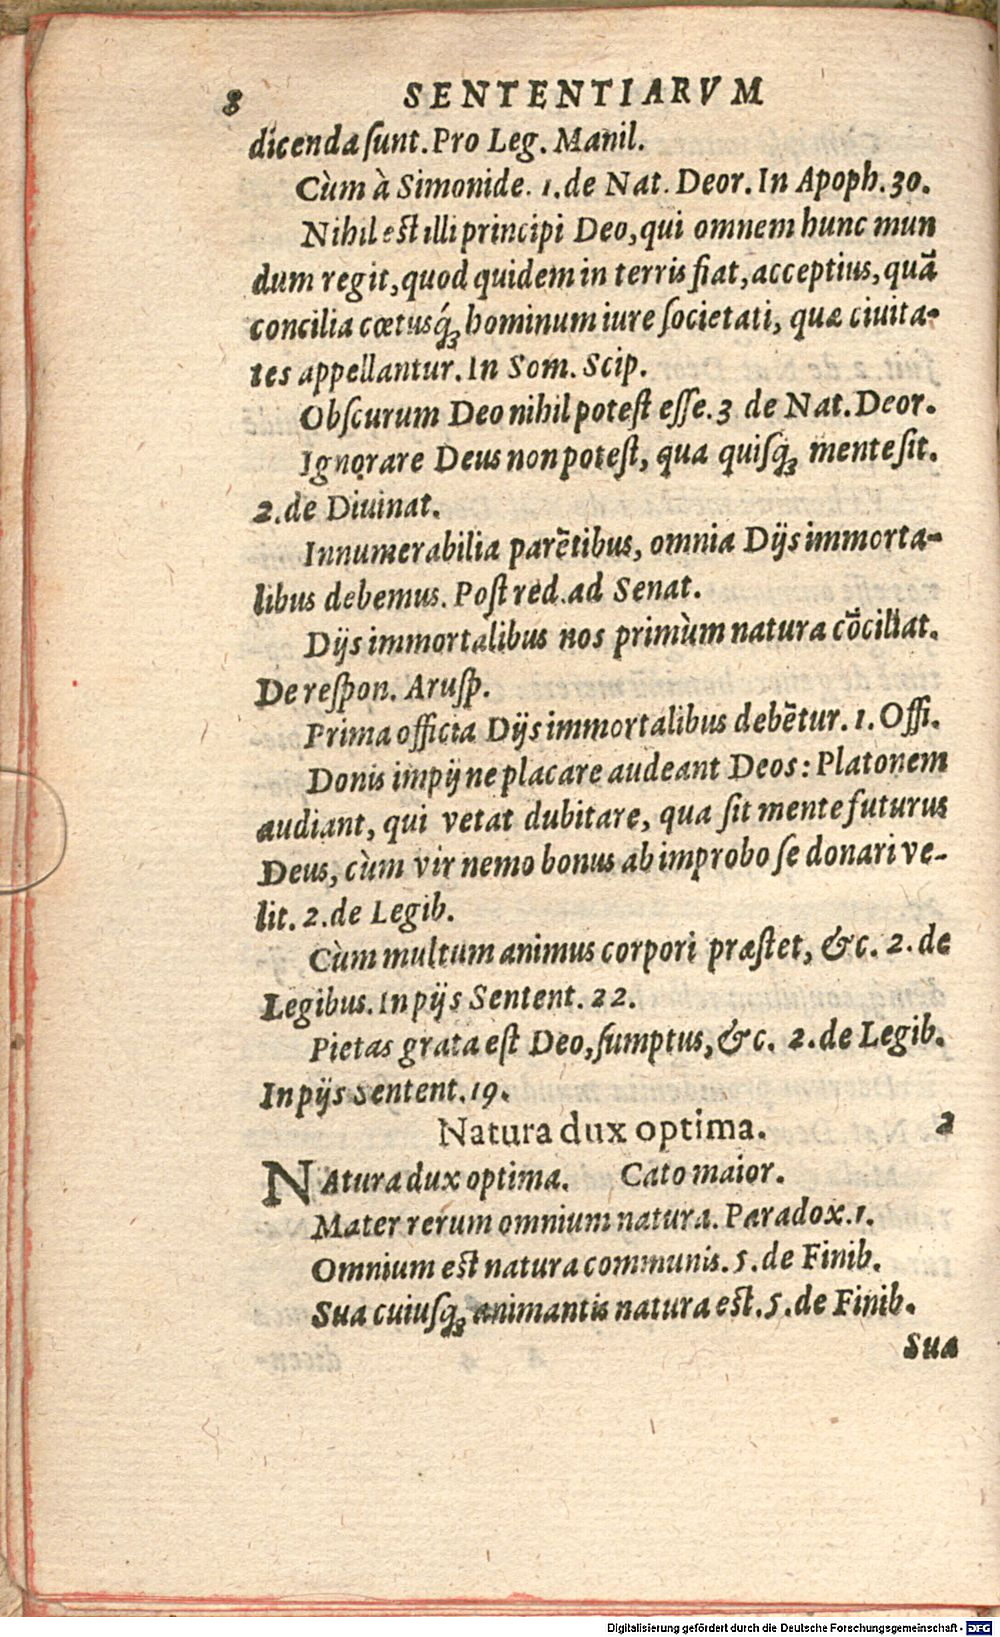 8 SENTENTIARVM
dicenda ſunt. Pro Leg. Manil.
Cùm à Simonide. 1. de Nat. Deor. In Apoph. 30.
Nihil est illi principi Deo, qui omnem hunc mun
dum regit, quod quidem in terris fiat, acceptius, quã
concilia cœtusq́ꝫ hominum iure ſocietati, quæ ciuita-
tes appellantur. In Som. Scip.
Obſcurum Deo nihil poteſt eſſe. 3 de Nat. Deor.
Ignorare Deus non poteſt, qua quiſqꝫ mente ſit.
2. de Diuinat.
Innumerabilia parẽtibus, omnia Dijs immorta-
libus debemus. Poſt red. ad Senat.
Dijs immortalibus nos primùm natura cõciliat.
De reſpon. Aruſp.
Prima officia Dijs immortalibus debẽtur. 1. Offi.
Donis impij ne placare audeant Deos: Platonem
audiant, qui vetat dubitare, qua ſit mente futurus
Deus, cùm vir nemo bonus ab improbo ſe donari ve-
lit. 2. de Legib.
Cùm multum animus corpori præſtet, &c. 2. de
Legibus. In pijs Sentent. 22.
Pietas grata eſt Deo, ſumptus, &c. 2. de Legib.
In pijs Sentent. 19.
Natura dux optima. 2
NAtura dux optima. Cato maior.
Mater rerum omnium natura. Paradox. 1.
Omnium est natura communis. 5. de Finib.
Sua cuiuſqꝫ animantis natura est. 5. de Finib.
Sua
Digitalisierung gefördert durch die Deutsche Forschungsgemeinschaft - DFG